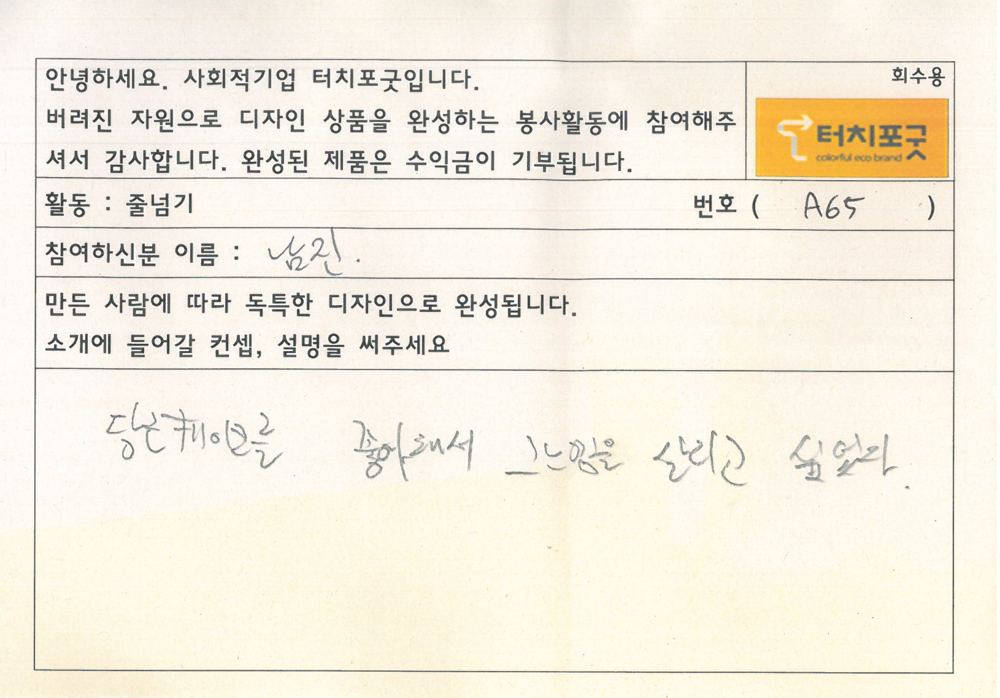 안녕하세요. 사회적기업 터치포굿입니다.
버려진 자원으로 디자인 상품을 완성하는 봉사활동에 참여해주
셔서 감사합니다. 완성된 제품은 수익금이 기부됩니다.
회수용
터치포굿
colorful eco brand
활동 : 줄넘기
번호 ( A65 )
참여하신분 이름 : 남진.
만든 사람에 따라 독특한 디자인으로 완성됩니다.
소개에 들어갈 컨셉, 설명을 써주세요
좋아해서 그느낌을 살리고 싶었다.